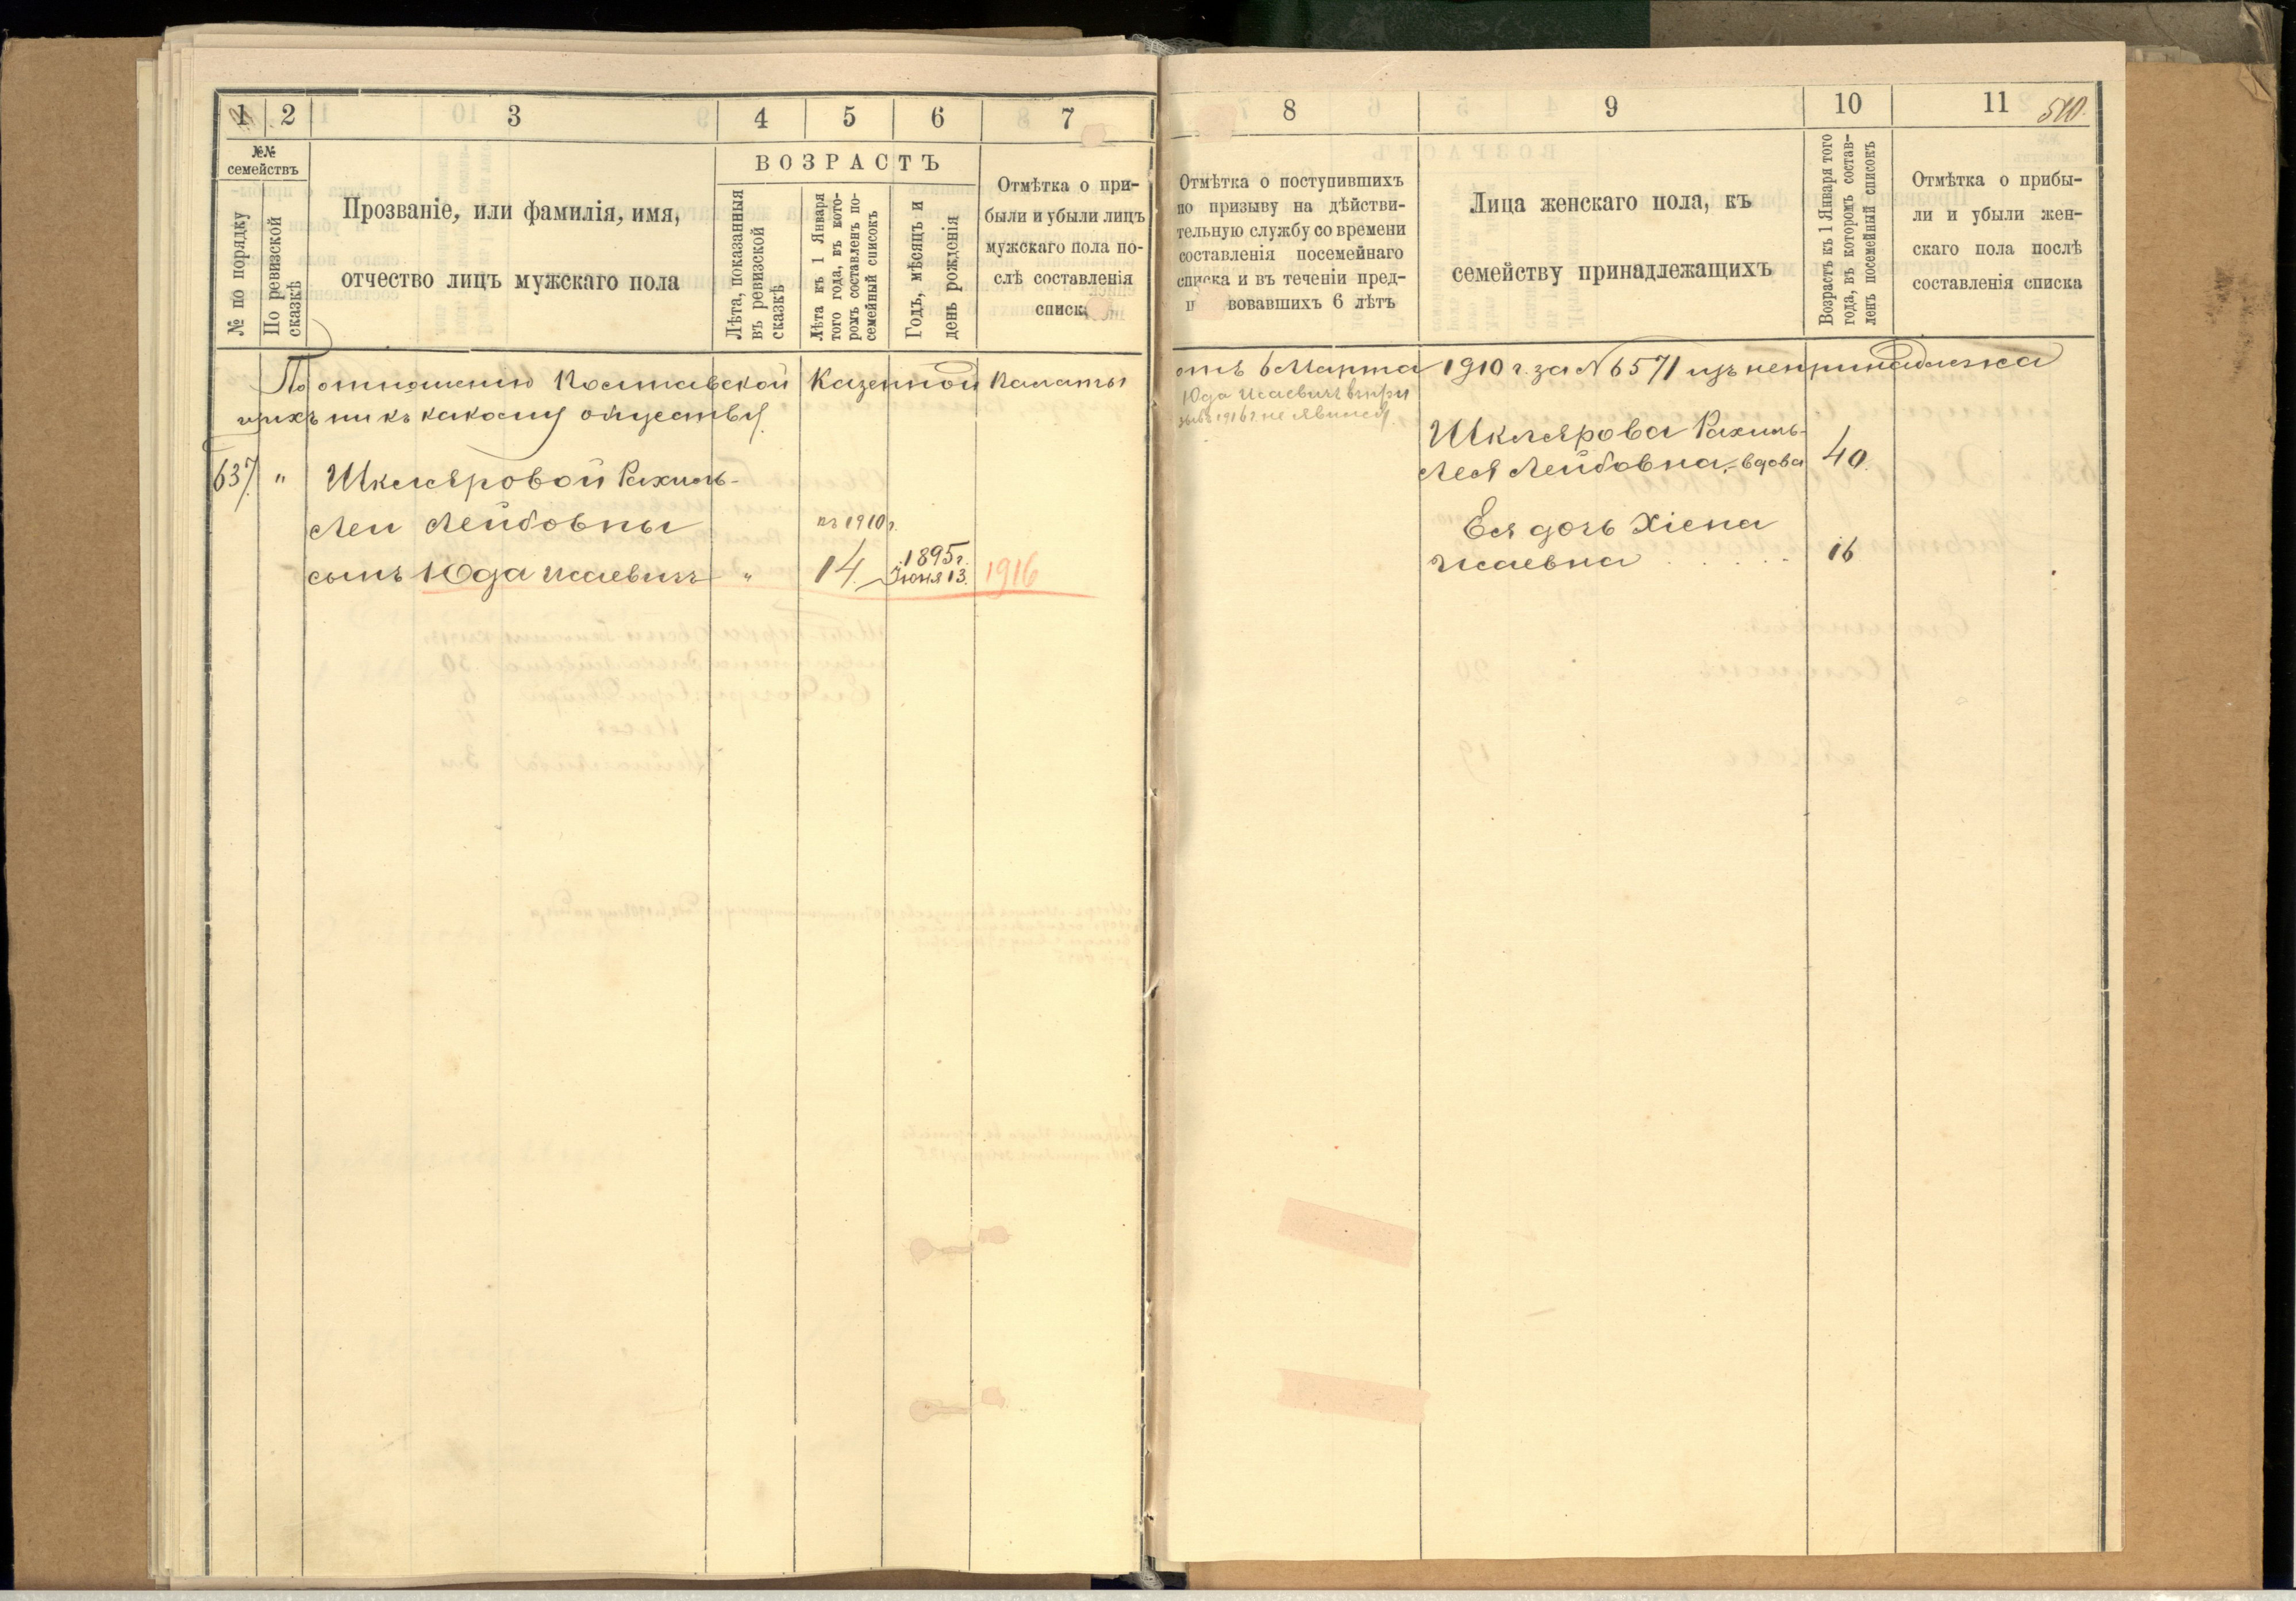 1 2 3 4 5 6 7
№№ семействъ
№ по порядку
По ревизской сказкѣ
Прозваніе, или фамилія, имя,
отчество лицъ мужскаго пола
ВОЗРАСТЪ
Лѣта, показанныя
въ ревизской
сказкѣ
Лѣта къ 1 Января
того года, въ кото-
ромъ составленъ по-
семейный списокъ
Годъ, мѣсяцъ и
день рожденія
Отмѣтка о при-
были и убыли лицъ
мужскаго пола по-
слѣ составленія
списк
По отношению Полтавской Казенной Палаты
щихъ ни къ какому обществу.
637. " Шкляровой Рахиль-
Леи Лейбовны
сынъ Юда Исаевичъ "
къ 1910 г.
14.
1895 г.
Іюня 13.
1916
8 9 10 11
510.
Отмѣтка о поступившихъ
по призыву на дѣйстви-
тельную службу со времени
составленія посемейнаго
списка и въ теченіи пред-
вовавшихъ 6 лѣтъ
Лица женскаго пола, къ
семейству принадлежащихъ
Возрастъ къ 1 Января того
года, въ которомъ состав-
ленъ посемейный списокъ
Отмѣтка о прибы-
ли и убыли жен-
скаго пола послѣ
составленія списка
отъ 6 Марта 1910 г. за № 6571 изъ непринадлежа
Юда Исаевичъ въ при
зывъ 1916 г. не явился.
Шклярова Рахиль-
Лея Лейбовна, - вдова 40.
Ея дочь Хіена
Исаевна . . . . 16